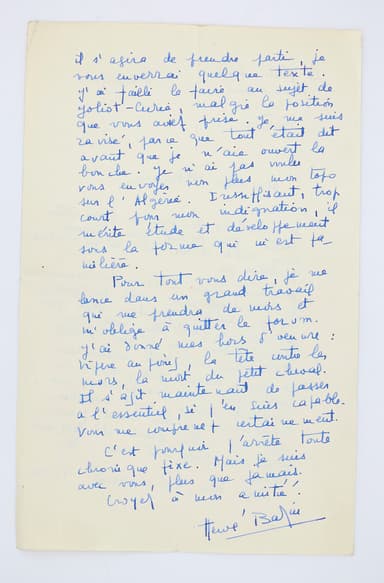 il s'agira de prendre parti, je
vous enverrai quelque texte.
J'ai failli le faire au sujet de
Joliot-Curie, malgré la position
que vous aviez prise. Je me suis
ravisé, parce que tout était dit
avant que je n'aie ouvert la
bouche. Je n'ai pas voulu
vous envoyer non plus mon topo
sur l'Algérie. Insuffisant, trop
court pour mon indignation, il
mérite étude et développement
sous la forme qui m'est fa-
milière.
Pour tout vous dire, je me
lance dans un grand travail
qui me prendra de mois et
m'oblige à quitter le forum.
J'ai donné mes hors d'oeuvre :
Vipère au poing, la tête contre les
murs, la mort du petit cheval.
Il s'agit maintenant de passer
à l'essentiel, si j'en suis capable.
Vous me comprenez certainement.
C'est pourquoi j'arrête toute
chronique fixe. Mais je suis
avec vous, plus que jamais.
Croyez à mon amitié !
Hervé Bazin